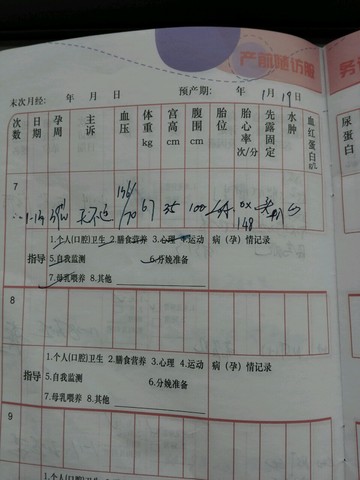 产前随访服
务
末次月经: 年 月 日 预产期: 年 1月19日
次数 日期 孕周 主诉 血压 体重kg 宫高cm 腹围cm 胎位 胎心率次/分 先露固定 水肿 血红蛋白g/L 尿蛋白
7
1-14 无不适 67 35 100 148
1.个人(口腔)卫生 2.膳食营养 3.心理 4.运动 病(孕)情记录
指导 5.自我监测 6.分娩准备
7.母乳喂养 8.其他
8
1.个人(口腔)卫生 2.膳食营养 3.心理 4.运动 病(孕)情记录
指导 5.自我监测 6.分娩准备
7.母乳喂养 8.其他
9
1.个人(口腔)卫生 2.膳食营养 3.心理 4.运动 病(孕)情记录